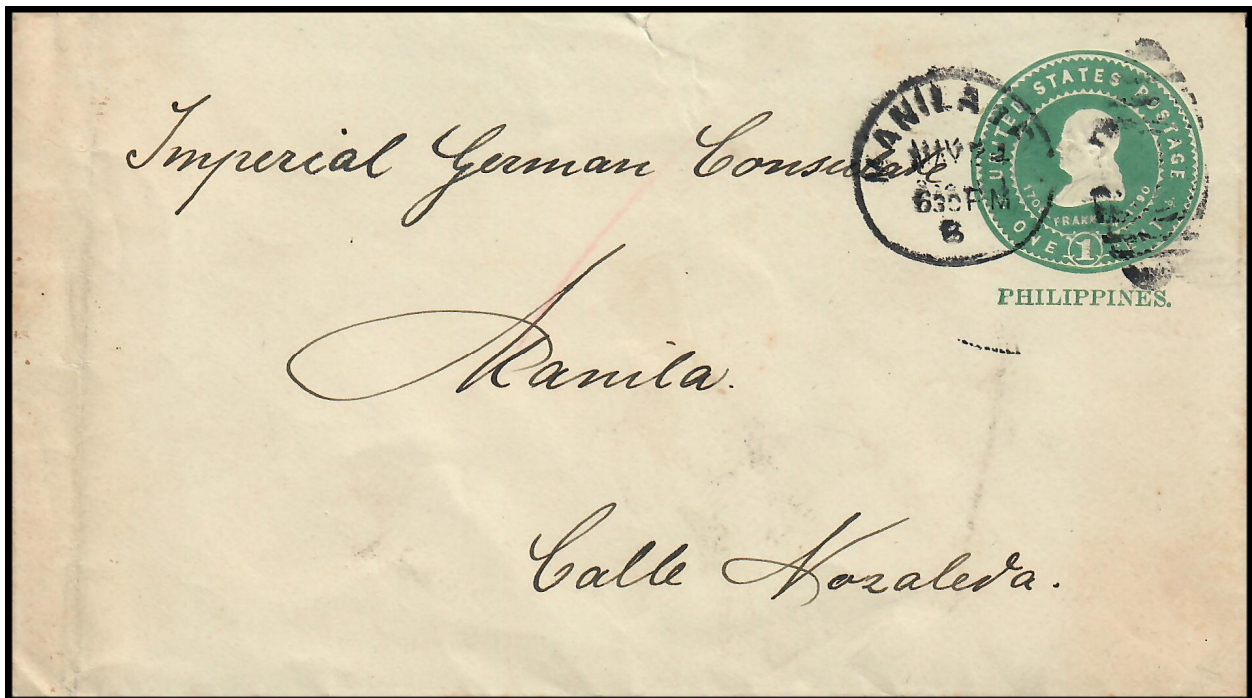 Imperial German Consulate
Manila.
Calle Nozaleda.
MANILA
MAY
630 PM
8
UNITED STATES POSTAGE
FRANK
ONE 1
PHILIPPINES.